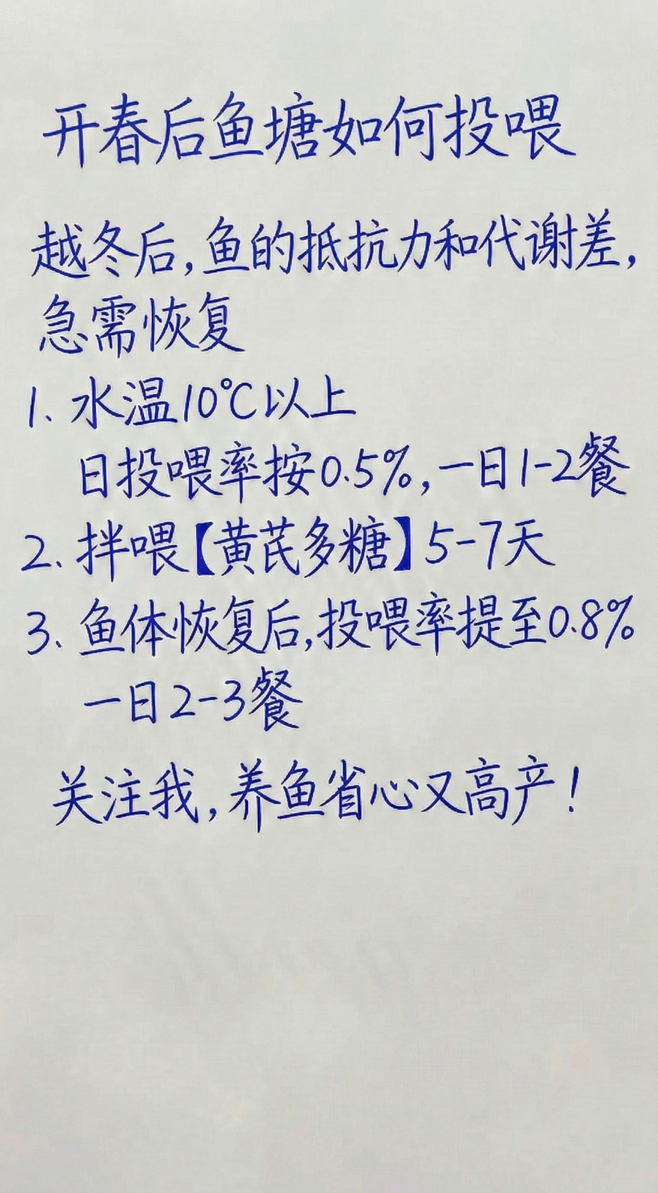 开春后鱼塘如何投喂
越冬后,鱼的抵抗力和代谢差,
急需恢复
1. 水温10℃以上
日投喂率按0.5%,一日1-2餐
2. 拌喂【黄芪多糖】5-7天
3. 鱼体恢复后,投喂率提至0.8%
一日2-3餐
关注我,养鱼省心又高产!